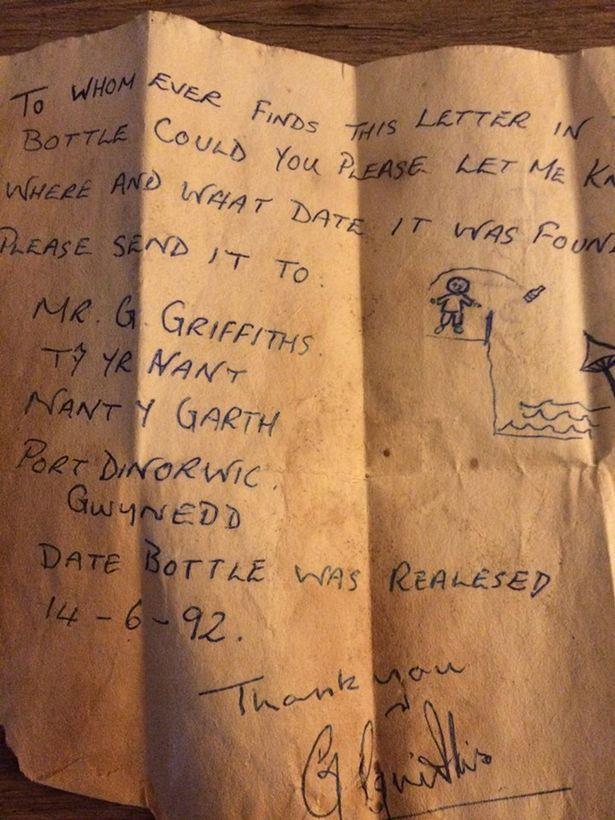 TO WHOM EVER FINDS THIS LETTER IN
BOTTLE COULD YOU PLEASE LET ME KN
WHERE AND WHAT DATE IT WAS FOUN
PLEASE SEND IT TO:
MR. G. GRIFFITHS.
TY YR NANT
NANT Y GARTH
PORT DINORWIC.
GWYNEDD
DATE BOTTLE WAS REALESED
14-6-92.
Thank you
G Griffiths